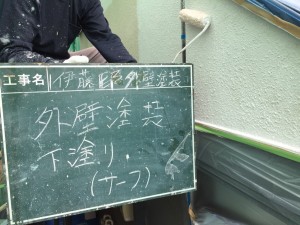 工事名 伊藤邸 外壁塗装
外壁塗装
下塗り
(サーフ)